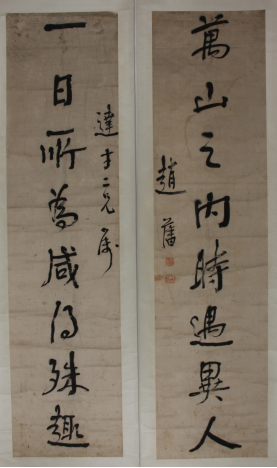 萬山之內時遇異人
趙藩
達才二兄屬
一日所為咸得殊趣